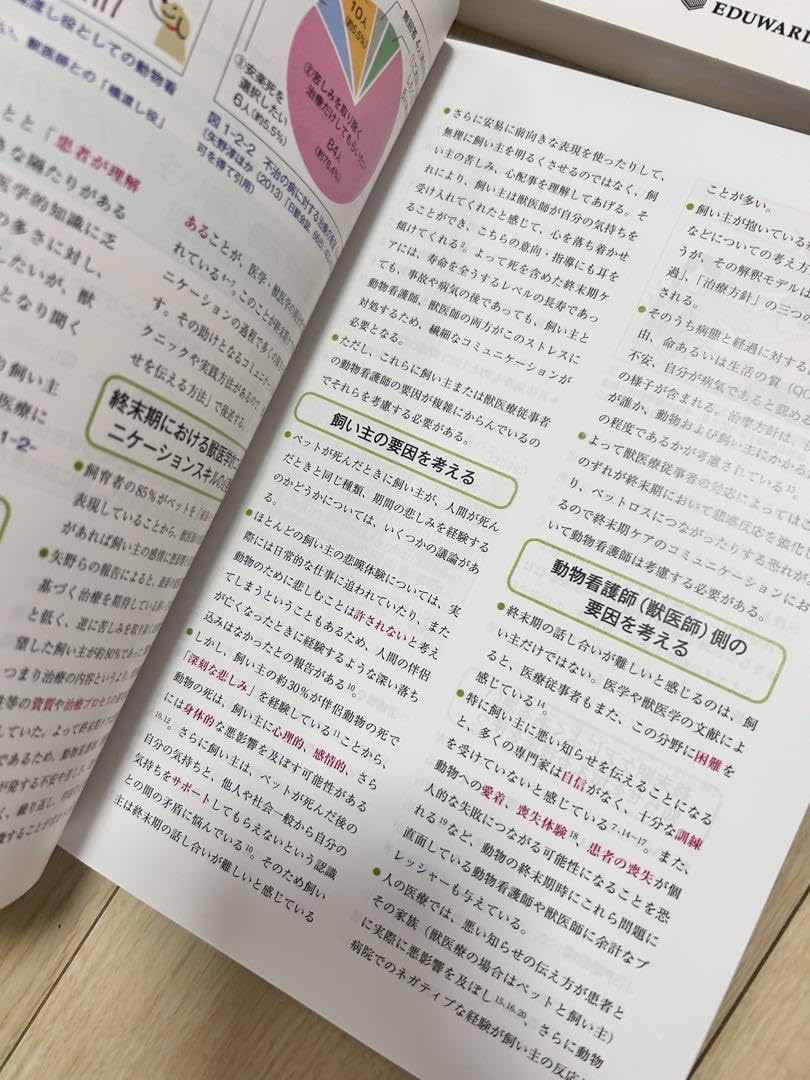 EDUWARD
渡し役としての動物看
獣医師との「橋渡し役」
とと「患者が理解
きな隔たりがある
医学的知識に乏
の多さに対し、
したいが、獣
となり聞く
飼い主
医療に
10人
(約5.5%)
③安楽死を
選択したい
6人(約5.5%)
②苦しみを取り除く
治療だけしてもらいたい
84人
(約76.4%)
図1-2-2 不治の病に対する治療の
(矢野淳ほか(2013)「日獣会誌、66
可を得て引用)
あることが、医学・獣医学の
れている
ニケーションの過程で多くの
す。その助けとなるコミュニケ
クニックや実践方法があるので
せを伝える方法」で後述する。
終末期における獣医学的コ
ニケーションスキルの
飼育者の85%がペットを「
表現していることから、
があれば飼い主の感情に
矢野らの報告によると、
基づく治療を期待している
と低く、逆に苦しみを取り除く
望した飼い主が約80%であった
つまり治療の内容というより、
性等の資質や治療プロセスの
していた。よって終末期ケア
であるため、動物看護師、
が発する不安や苦し
さらに安易に前向きな表現を使ったりして、
無理に飼い主を明るくさせるのではなく、飼
い主の苦しみ、心配事を理解してあげる。そ
れにより、飼い主は獣医師が自分の気持ちを
受け入れてくれたと感じて、心を落ち着かせ
ることができ、こちらの意向・指導にも耳を
傾けてくれる2。よって死を含めた終末期ケ
アには、寿命を全うするレベルの長寿であっ
ても、事故や病気の後であっても、飼い主と
動物看護師、獣医師の両方がこのストレスに
対処するため、繊細なコミュニケーションが
必要となる。
ただし、これらに飼い主または獣医療従事者
の動物看護師の要因が複雑にからんでいるの
でそれらを考慮する必要がある。
飼い主の要因を考える
ペットが死んだときに飼い主が、人間が死ん
だときと同じ種類、期間の悲しみを経験する
のかどうかについては、いくつかの議論があ
る。
ほとんどの飼い主の悲嘆体験については、実
際には日常的な仕事に追われていたり、また
動物のために悲しむことは許されないと考え
てしまうということもあるため、人間の伴侶
が亡くなったときに経験するような深い落ち
込みはなかったとの報告がある10。
しかし、飼い主の約30%が伴侶動物の死で
「深刻な悲しみ」を経験している11ことから、
動物の死は、飼い主に心理的、感情的、さら
には身体的な悪影響を及ぼす可能性がある
10,12。さらに飼い主は、ペットが死んだ後の
自分の気持ちと、他人や社会一般から自分の
気持ちをサポートしてもらえないという認識
との間の矛盾に悩んでいる10。そのため飼い
主は終末期の話し合いが難しいと感じている
ことが多い。
飼い主が抱いている
などについての考え方
うが、その解釈モデルは
過」、「治療方針」の三つの
される。
そのうち病態と経過に対する
由、命あるいは生活の質(Q
不安、自分が病気であると認め
の様子が含まれる。治療方針は、
が誰か、動物および飼い主にかかる
の程度であるかが考慮されている13。
よって獣医療従事者の対応によっては、
のずれが終末期において悲嘆反応を強化
り、ペットロスにつながったりする恐れが
るので終末期ケアのコミュニケーションにお
いて動物看護師は考慮する必要がある。
動物看護師(獣医師)側の
要因を考える
終末期の話し合いが難しいと感じるのは、飼
い主だけではない。医学や獣医学の文献によ
ると、医療従事者もまた、この分野に困難を
感じている14。
特に飼い主に悪い知らせを伝えることになる
と、多くの専門家は自信がなく、十分な訓練
を受けていないと感じている7,14-17。また、
動物への愛着、喪失体験18、患者の喪失が個
人的な失敗につながる可能性になることを恐
れる19など、動物の終末期時にこれら問題に
直面している動物看護師や獣医師に余計なプ
レッシャーも与えている。
人の医療では、悪い知らせの伝え方が患者と
その家族(獣医療の場合はペットと飼い主)
に実際に悪影響を及ぼし15,16,20、さらに動物
病院でのネガティブな経験が飼い主の反応